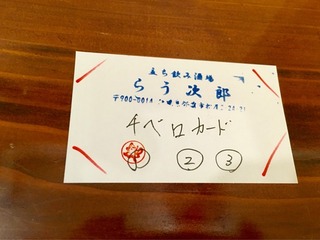 立ち飲み酒場
らう次郎
〒900-0014
4ベロカード
② ③